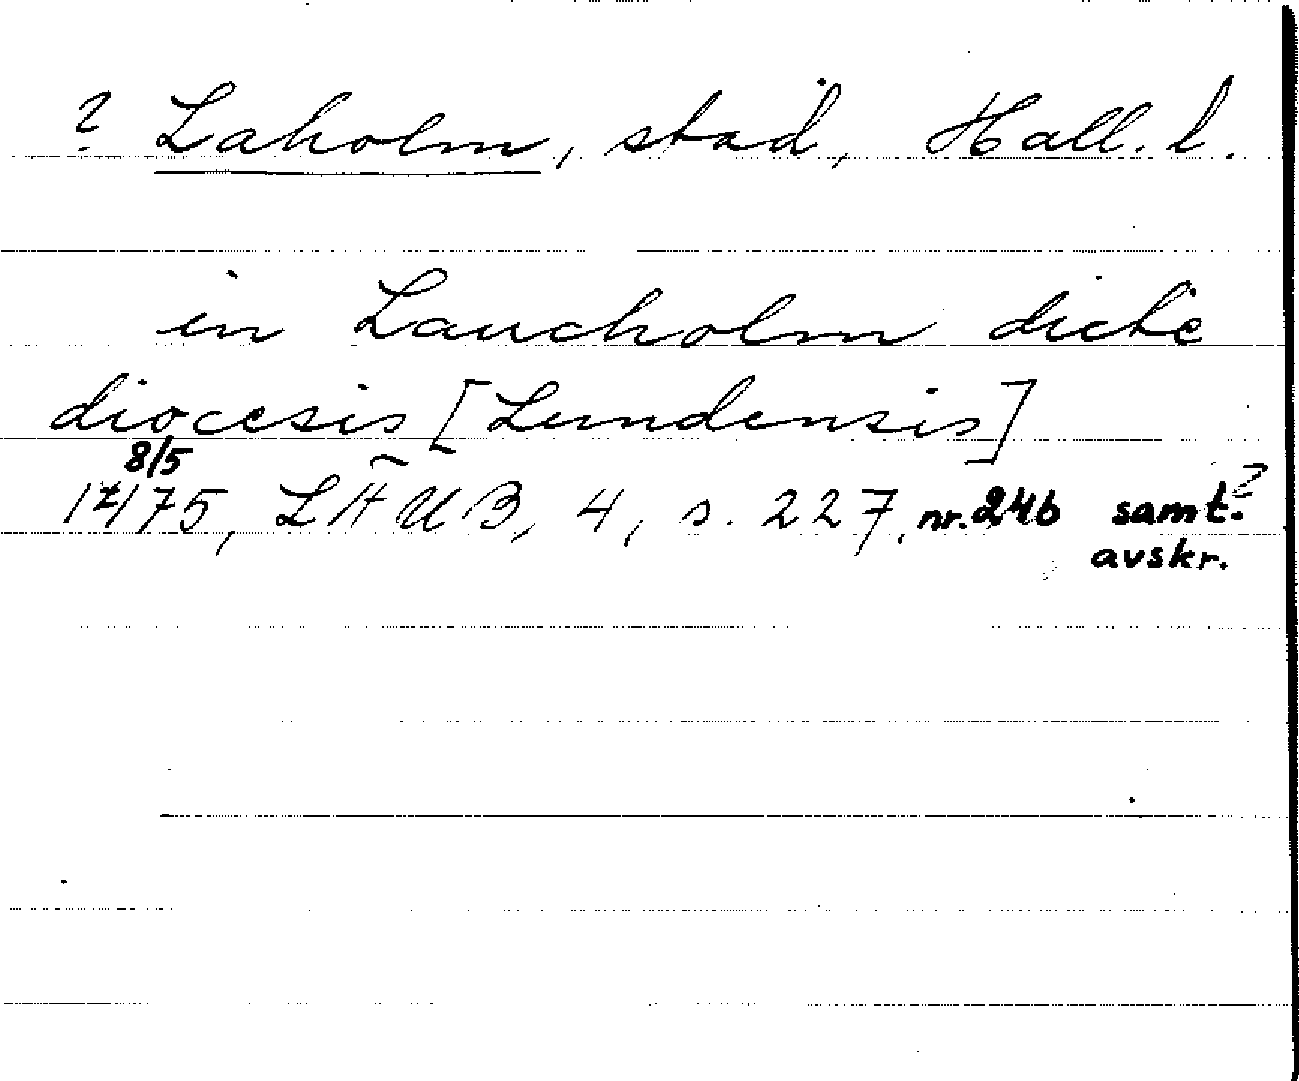 ? Laholm, stad, Hall. l.
in Laucholm dicte
diocesis [Lundensis]
8/5
1475, LÄUB, 4, s. 227, nr. 246 samt.?
avskr.